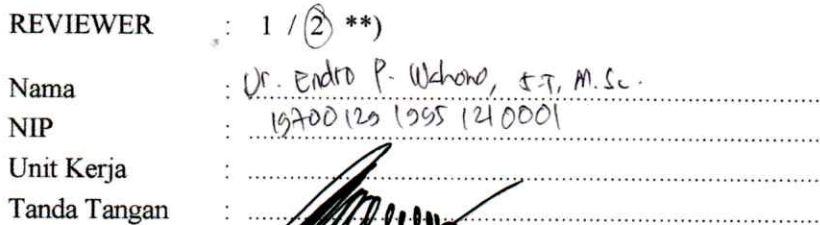 REVIEWER : 1 / 2 **)
Nama : Dr. Endro P. Wahono, S.T, M.Sc.
NIP : 19700129 199512 1 0001
Unit Kerja :
Tanda Tangan :